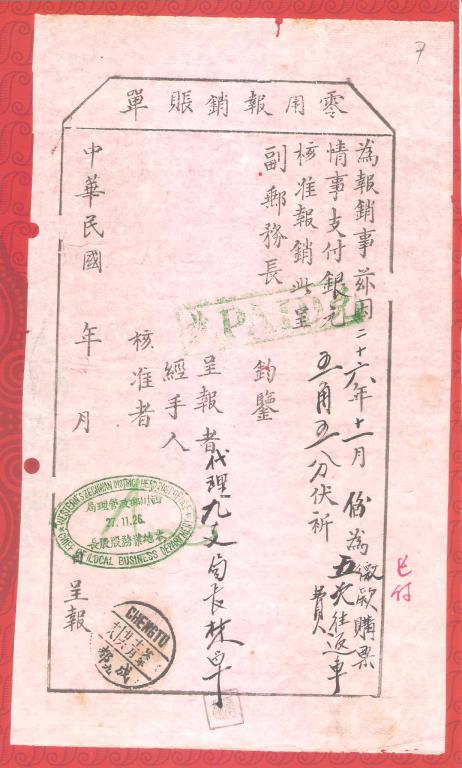 7
零用報銷賬單
為報銷事茲因二十六年十一月份為繳款購票
五次往返車費
情事支付銀元五角五八分伏祈
核准報銷此呈
副郵務長 鈞鑒
呈報者代理九支局長林
經手人
核准者
中華民國 年 月 日呈報
PAID
已付
WESTERN SZECHWAN DISTRICT HEAD POST OFFICE
西川郵政管理局
27.11.26.
本地業務股股長
LOCAL BUSINESS DEPARTMENT
CHENGTU
成都